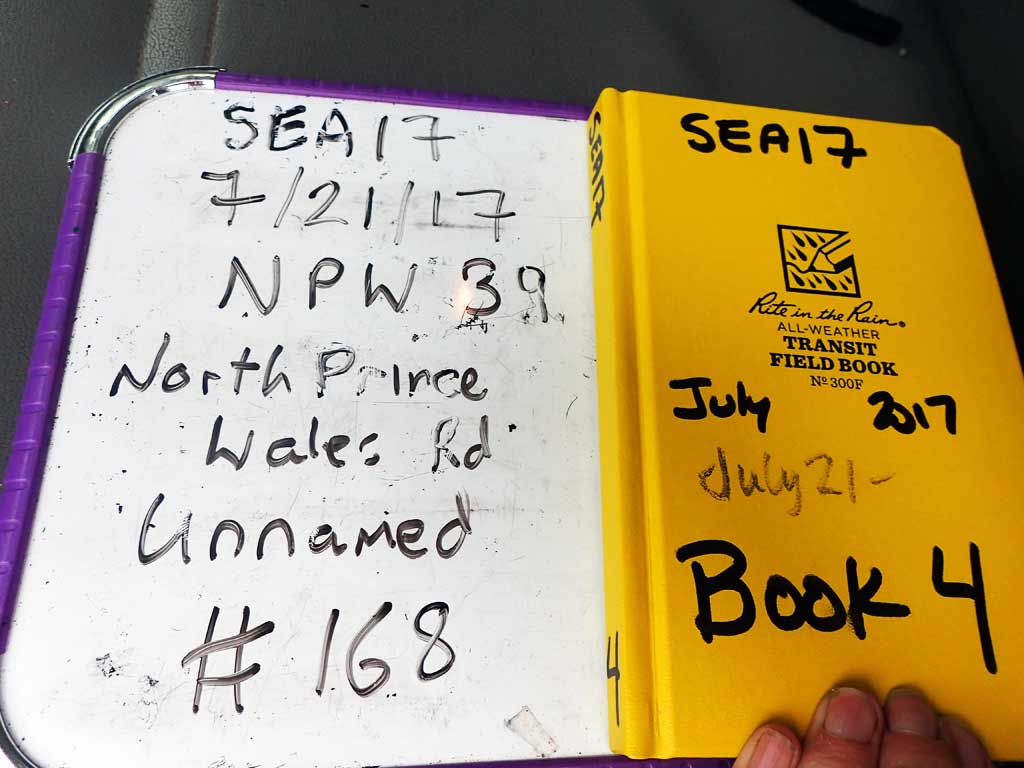 SEA17
7/21/17
NPW 39
North Prince
Wales Rd
Unnamed
# 168
SEA17
4
SEA17
Rite in the Rain®
ALL-WEATHER
TRANSIT
FIELD BOOK
Nº 300F
July 2017
July 21-
Book 4